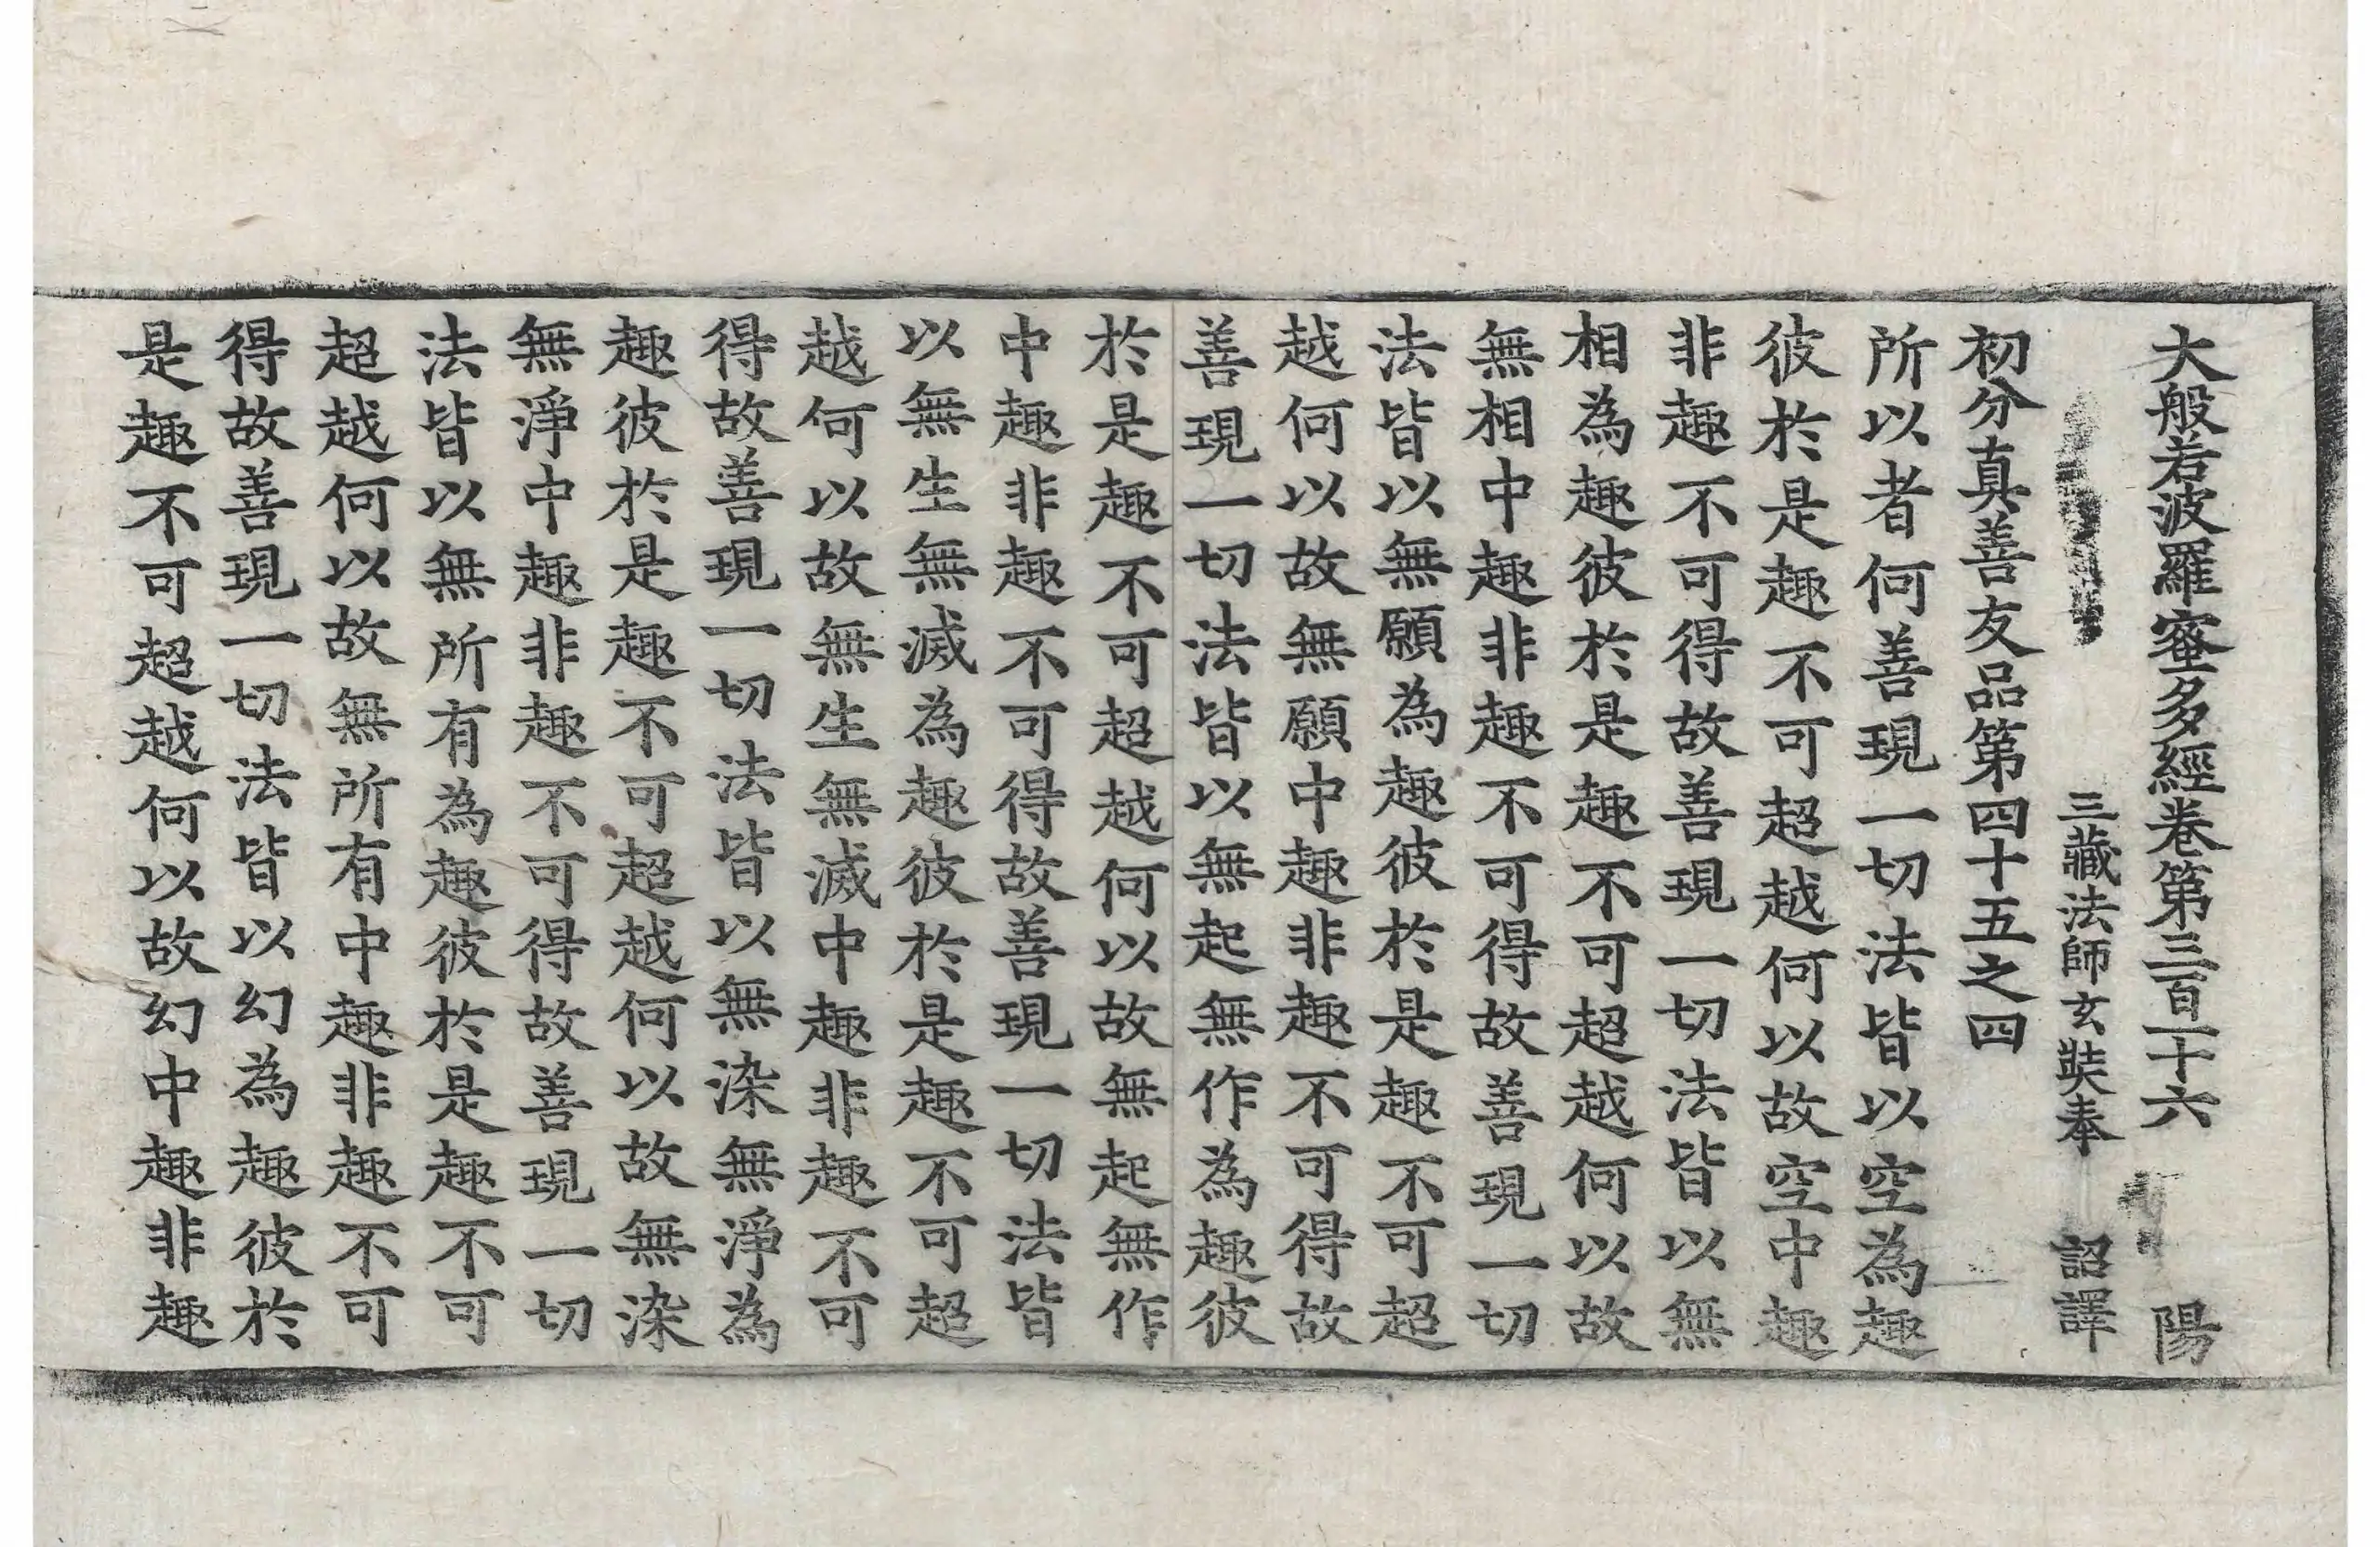 大般若波羅蜜多經卷第三百一十六 陽
三藏法師玄奘奉 詔譯
初分真善友品第四十五之四
所以者何善現一切法皆以空為趣
彼於是趣不可超越何以故空中趣
非趣不可得故善現一切法皆以無
相為趣彼於是趣不可超越何以故
無相中趣非趣不可得故善現一切
法皆以無願為趣彼於是趣不可超
越何以故無願中趣非趣不可得故
善現一切法皆以無起無作為趣彼
於是趣不可超越何以故無起無作
中趣非趣不可得故善現一切法皆
以無生無滅為趣彼於是趣不可超
越何以故無生無滅中趣非趣不可
得故善現一切法皆以無染無淨為
趣彼於是趣不可超越何以故無染
無淨中趣非趣不可得故善現一切
法皆以無所有為趣彼於是趣不可
超越何以故無所有中趣非趣不可
得故善現一切法皆以幻為趣彼於
是趣不可超越何以故幻中趣非趣